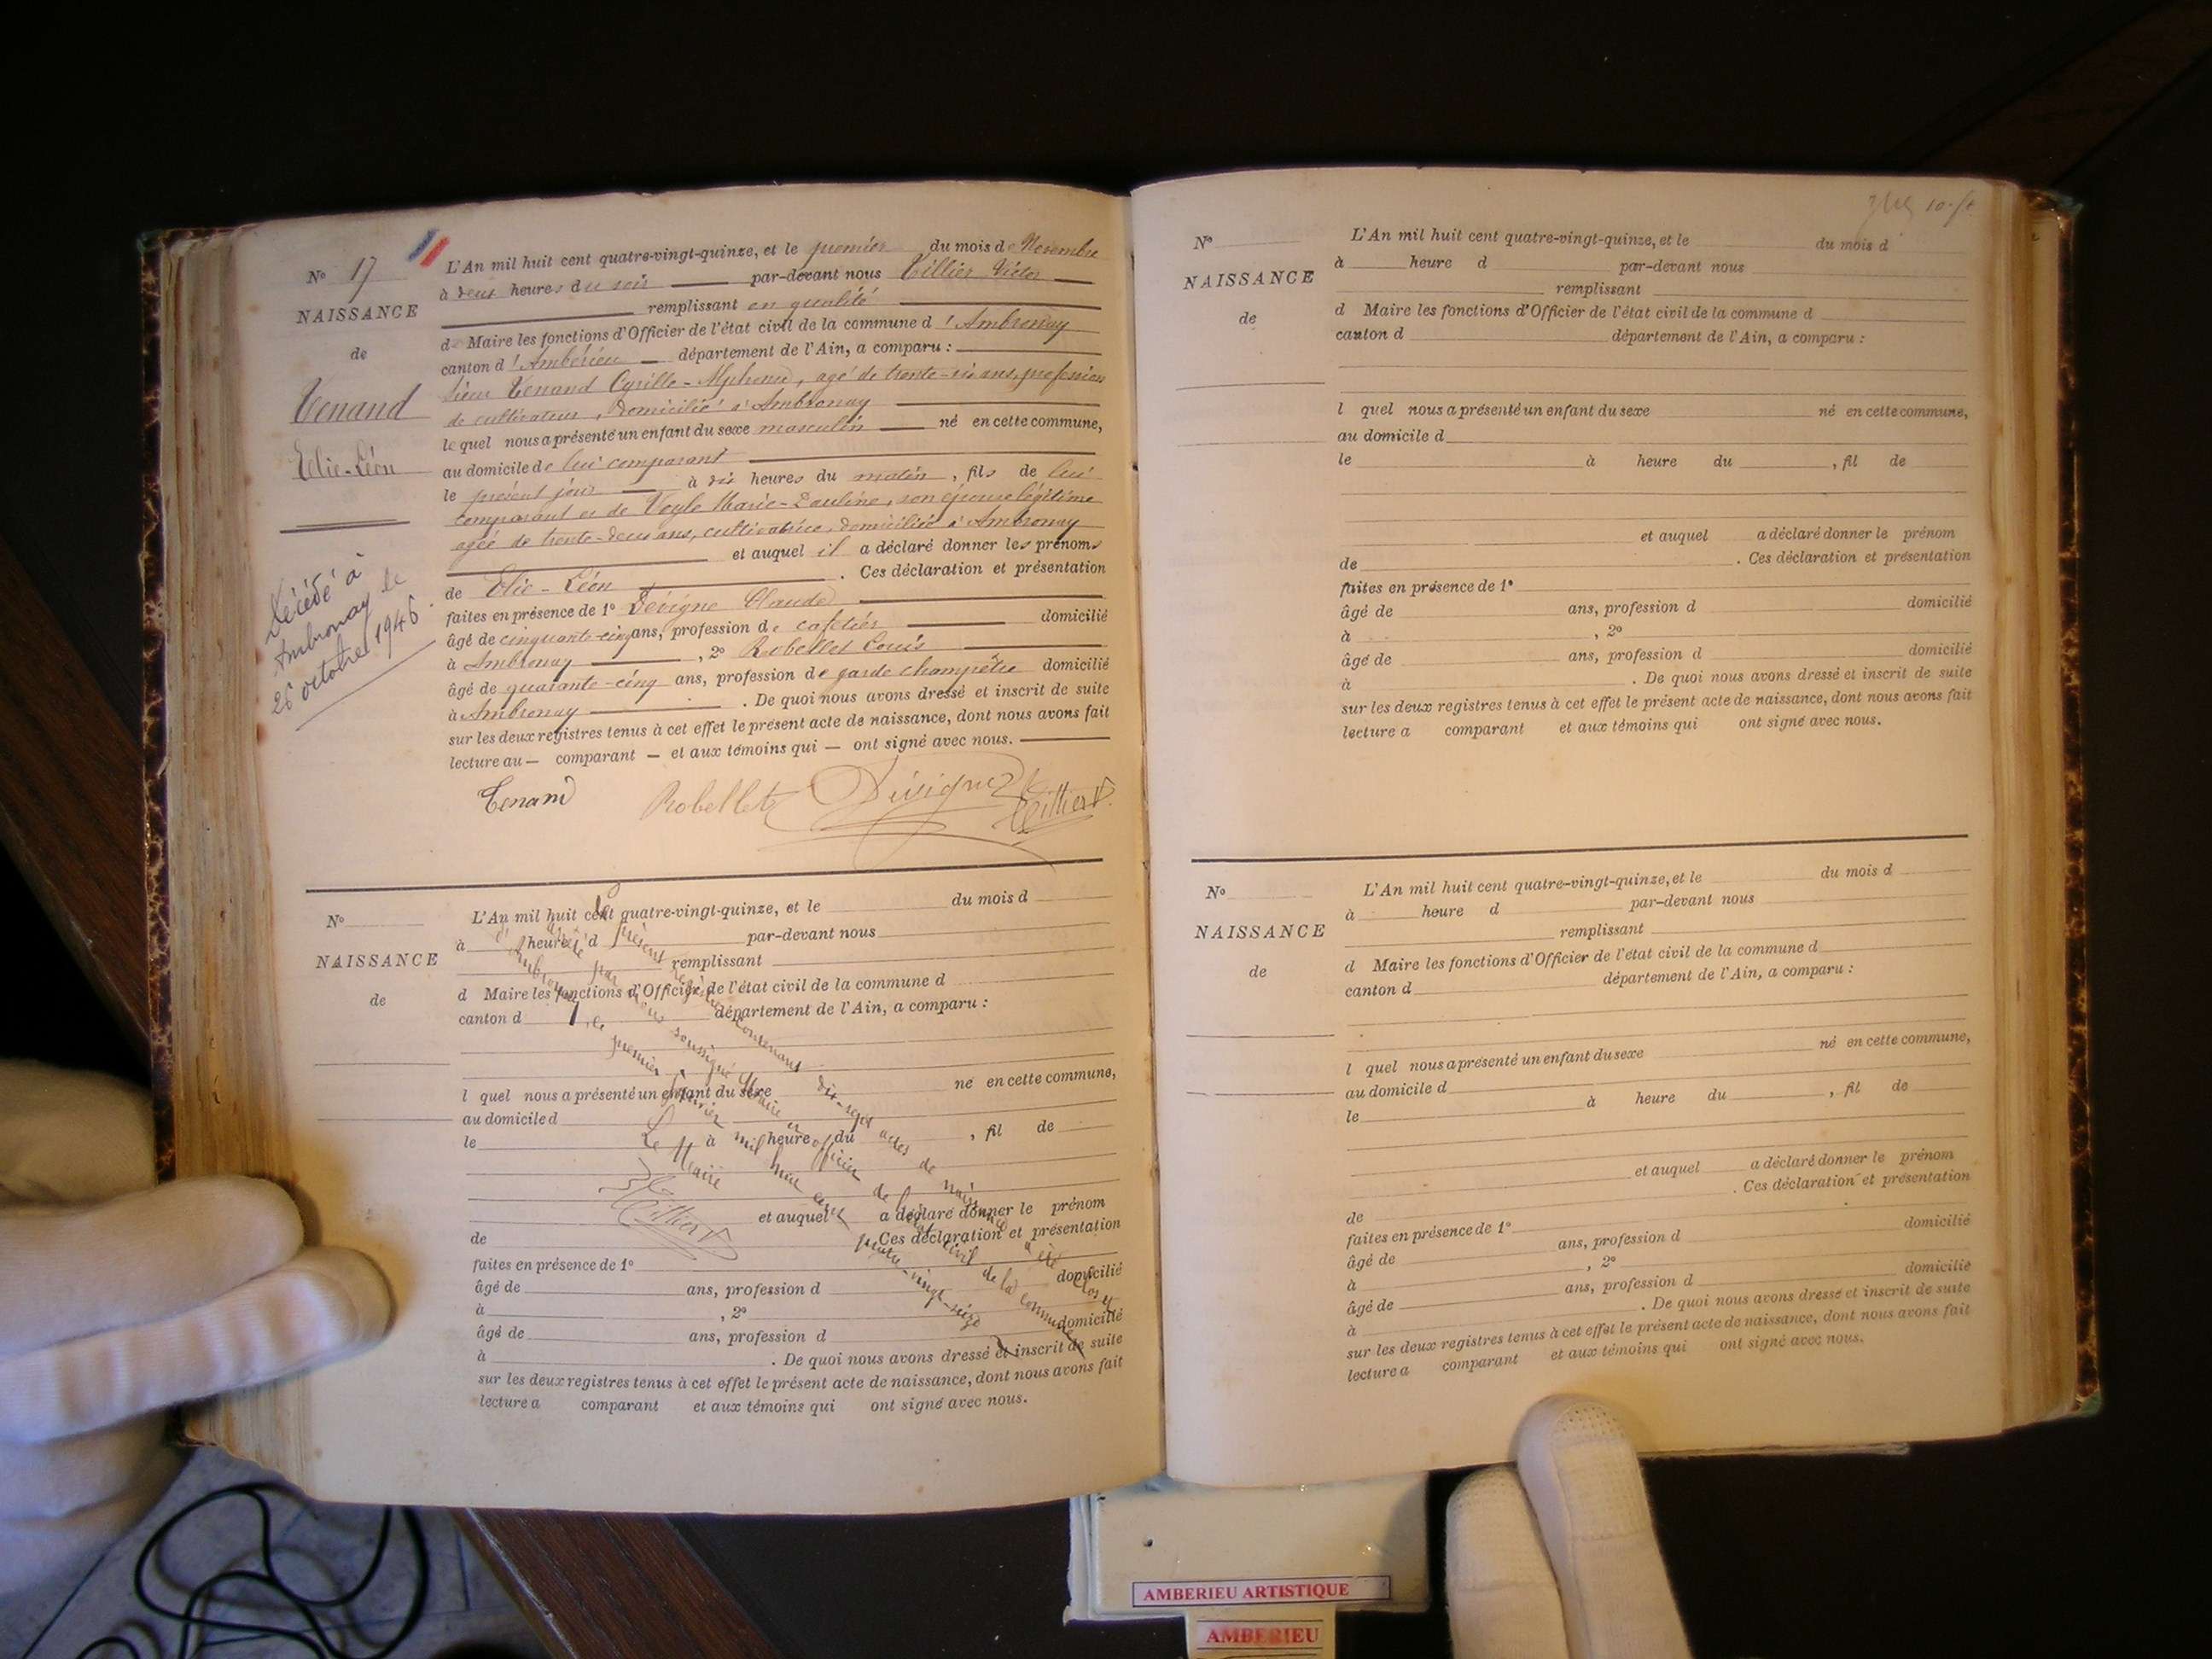 N° 17
NAISSANCE
de
Tenand
Elie-Léon
Décédé à
Ambronay le
26 octobre 1946
L'An mil huit cent quatre-vingt-quinze, et le premier du mois de Novembre
à deux heures du soir par-devant nous Tillier Victor
remplissant en qualité
de Maire les fonctions d'Officier de l'état civil de la commune d'Ambronay
canton d'Ambérieu département de l'Ain, a comparu :
sieur Tenand Cyrille-Alphonse, agé de trente-six ans, profession
de cultivateur, domicilié à Ambronay
lequel nous a présenté un enfant du sexe masculin né en cette commune,
au domicile de lui comparant
le présent jour à dix heures du matin, fils de lui
comparant et de Veyle Marie-Pauline, son épouse légitime
agée de trente-deux ans, cultivatrice, domiciliée à Ambronay
et auquel il a déclaré donner les prénoms
de Elie-Léon . Ces déclaration et présentation
faites en présence de 1° Dévigne Claude
âgé de cinquante-cinq ans, profession de cafetier domicilié
à Ambronay , 2° Robellet Louis
âgé de quarante-cinq ans, profession de garde champêtre domicilié
à Ambronay . De quoi nous avons dressé et inscrit de suite
sur les deux registres tenus à cet effet le présent acte de naissance, dont nous avons fait
lecture au — comparant — et aux témoins qui — ont signé avec nous.
Tenand Robellet Dévigne Tillier V.
N°
NAISSANCE
de
L'An mil huit cent quatre-vingt-quinze, et le du mois d
à heure d par-devant nous
remplissant
d Maire les fonctions d'Officier de l'état civil de la commune d
canton d département de l'Ain, a comparu :
l quel nous a présenté un enfant du sexe né en cette commune,
au domicile d
le à heure du , fil de
et auquel a déclaré donner le prénom
de Ces déclaration et présentation
faites en présence de 1°
âgé de ans, profession d domicilié
à , 2°
âgé de ans, profession d domicilié
à . De quoi nous avons dressé et inscrit de suite
sur les deux registres tenus à cet effet le présent acte de naissance, dont nous avons fait
lecture a comparant et aux témoins qui ont signé avec nous.
Le présent registre contenant dix-sept actes de naissance a été clos et
arrêté par nous soussigné Maire et officier de l'état civil de la commune
d'Ambronay, le premier Janvier mil huit cent quatre-vingt-seize
Le Maire
Tillier V
10
N°
NAISSANCE
de
L'An mil huit cent quatre-vingt-quinze, et le du mois d
à heure d par-devant nous
remplissant
d Maire les fonctions d'Officier de l'état civil de la commune d
canton d département de l'Ain, a comparu :
l quel nous a présenté un enfant du sexe né en cette commune,
au domicile d
le à heure du , fil de
et auquel a déclaré donner le prénom
de . Ces déclaration et présentation
faites en présence de 1°
âgé de ans, profession d domicilié
à , 2°
âgé de ans, profession d domicilié
à . De quoi nous avons dressé et inscrit de suite
sur les deux registres tenus à cet effet le présent acte de naissance, dont nous avons fait
lecture a comparant et aux témoins qui ont signé avec nous.
N°
NAISSANCE
de
L'An mil huit cent quatre-vingt-quinze, et le du mois d
à heure d par-devant nous
remplissant
d Maire les fonctions d'Officier de l'état civil de la commune d
canton d département de l'Ain, a comparu :
l quel nous a présenté un enfant du sexe né en cette commune,
au domicile d
le à heure du , fil de
et auquel a déclaré donner le prénom
de . Ces déclaration et présentation
faites en présence de 1°
âgé de ans, profession d domicilié
à , 2°
âgé de ans, profession d domicilié
à . De quoi nous avons dressé et inscrit de suite
sur les deux registres tenus à cet effet le présent acte de naissance, dont nous avons fait
lecture a comparant et aux témoins qui ont signé avec nous.
AMBERIEU ARTISTIQUE
AMBERIEU